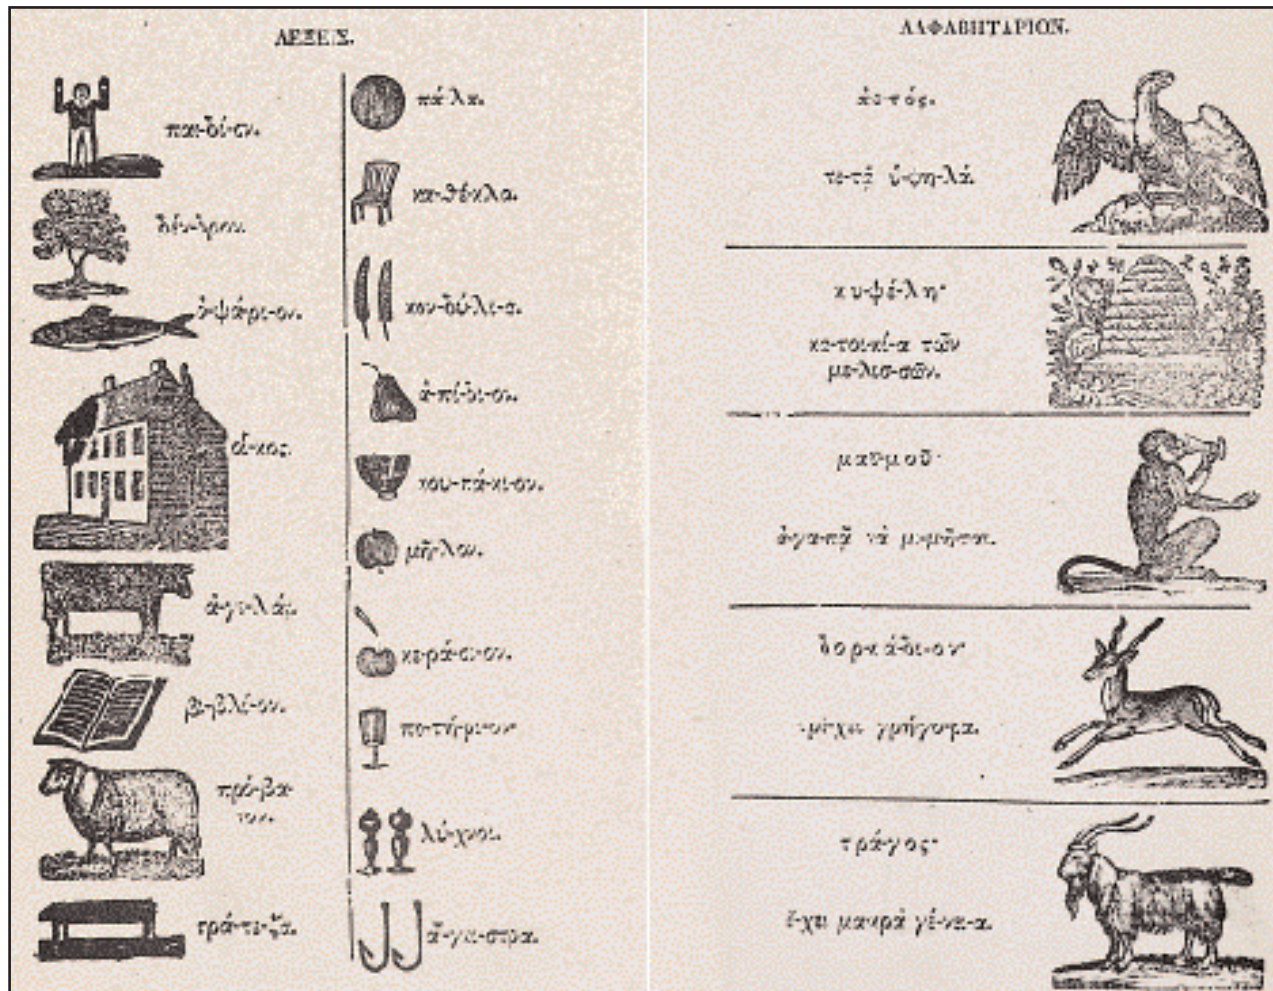 ΛΕΞΕΙΣ.
παι-δί-ον.
δέν-δρον.
ὀ-ψά-ρι-ον.
οἶ-κος.
ἀ-γε-λάς.
βι-βλί-ον.
πρό-βα-
τον.
τρά-πε-ζα.
πά-λα.
κα-θέ-κλα.
κον-δύ-λι-α.
ἀ-πί-δι-ον.
κου-πά-κι-ον.
μῆ-λον.
κε-ρά-σι-ον.
πο-τή-ρι-ον·
λύ-χνοι.
ἄγ-κι-στρα.
ΑΛΦΑΒΗΤΑΡΙΟΝ.
ἀε-τός.
πε-τᾷ ὑ-ψη-λά.
κυ-ψέ-λη·
κα-τοι-κί-α τῶν
με-λισ-σῶν.
μαϊ-μοῦ·
ἀ-γα-πᾷ νὰ μι-μῆται.
δορ-κά-δι-ον·
τρέ-χει γρήγο-ρα.
τρά-γος·
ἔ-χει μακρὰ γέ-νει-α.